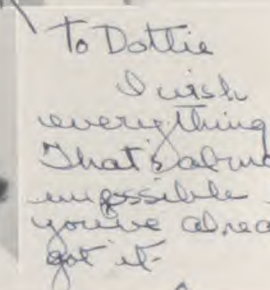 To Dottie
I wish
everything
That's almo
impossible
you've alrea
got it-